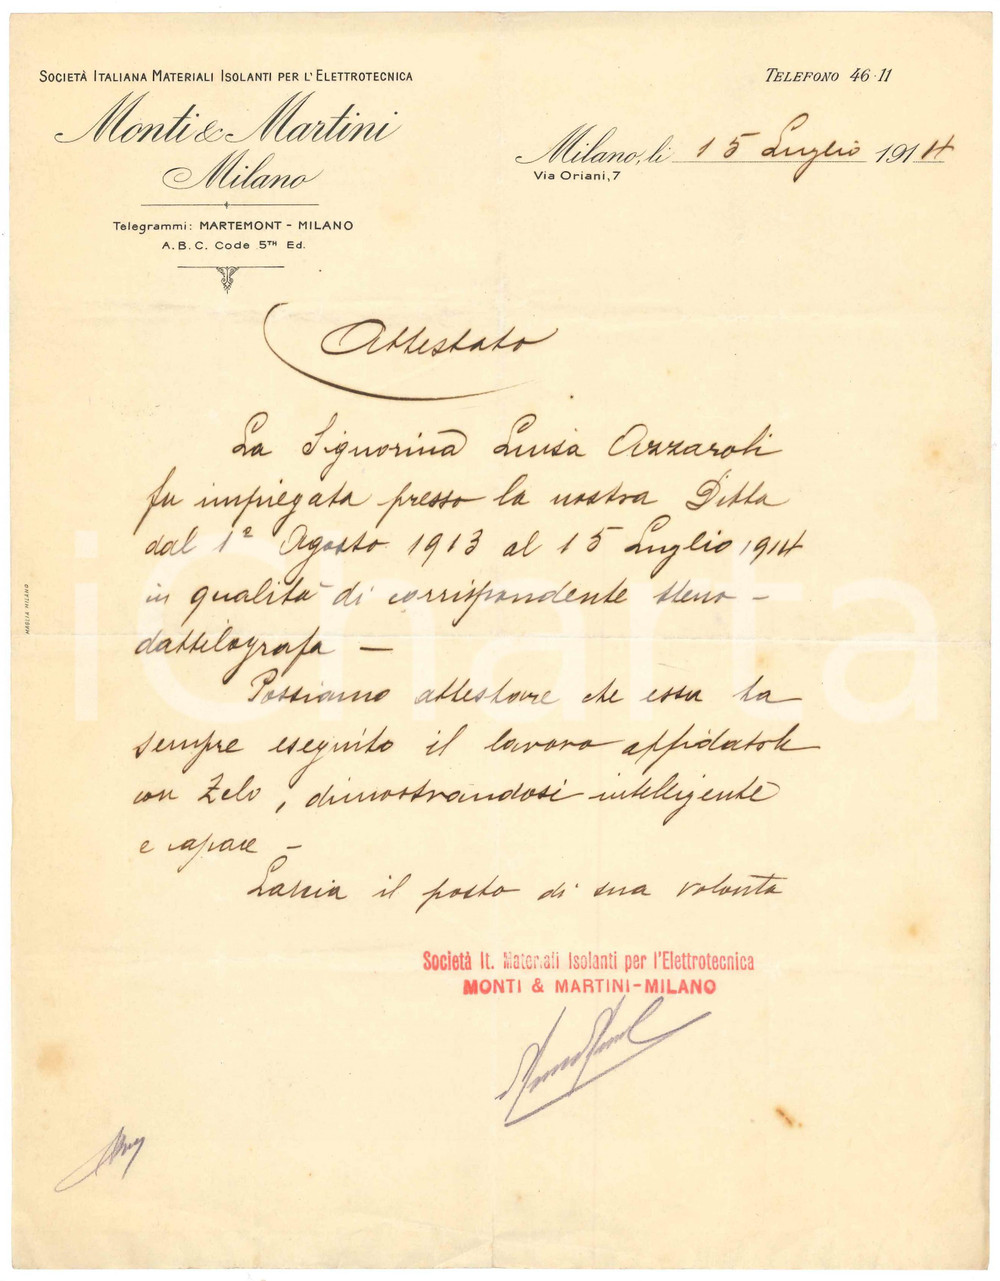 SOCIETÀ ITALIANA MATERIALI ISOLANTI PER L'ELETTROTECNICA
TELEFONO 46-11
Monti & Martini
Milano
Milano, li 15 Luglio 1914
Via Oriani, 7
Telegrammi: MARTEMONT - MILANO
A.B.C. Code 5TH Ed.
Attestato
La Signorina Luisa Azzaroli
fu impiegata presso la nostra Ditta
dal 1° Agosto 1913 al 15 Luglio 1914
in qualità di corrispondente steno-
dattilografa —
Possiamo attestare che essa ha
sempre eseguito il lavoro affidatole
con zelo, dimostrandosi intelligente
e capace —
Lascia il posto di sua volontà
Società It. Materiali Isolanti per l'Elettrotecnica
MONTI & MARTINI-MILANO
MAGLIA MILANO
iCharta